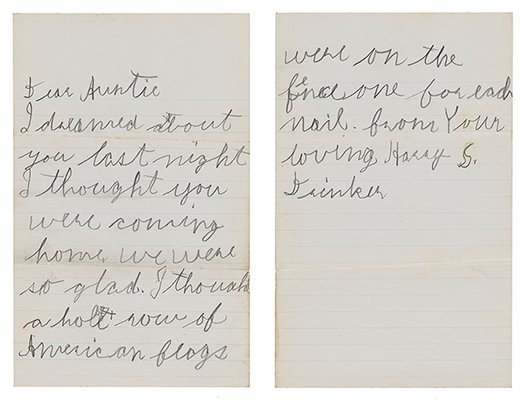 Dear Auntie
I dreamed about
you last night
I thought you
were coming
home we were
so glad. I thought
a hole row of
American flags
were on the
fence one for each
nail. from Your
loving Harry S.
Drinker